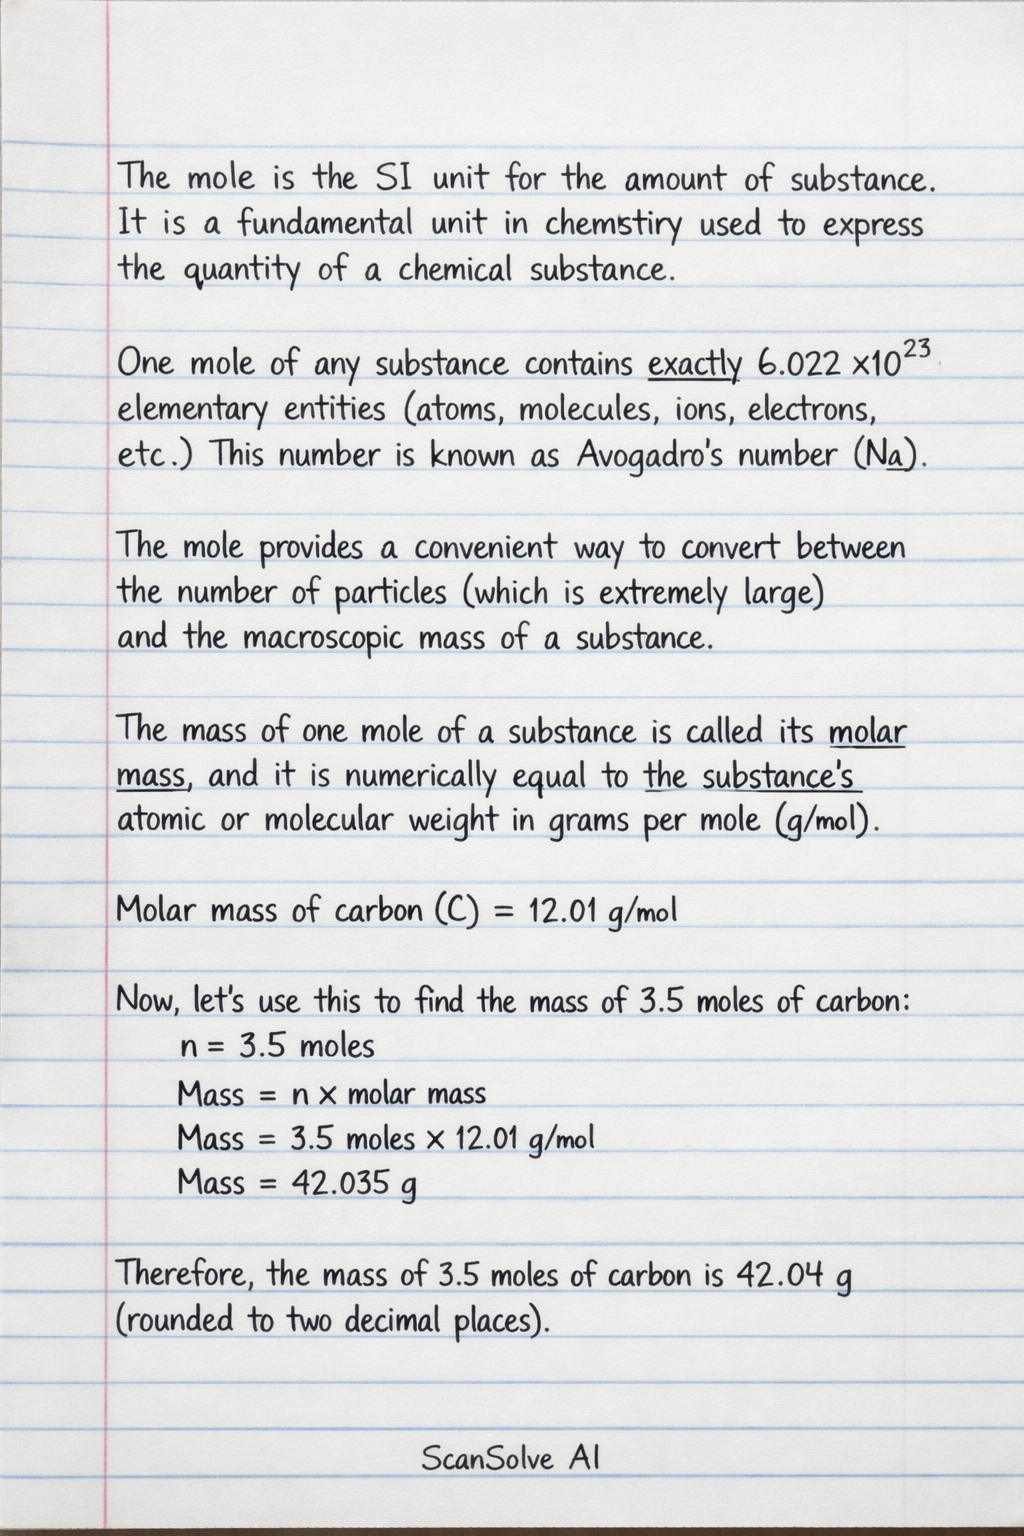 The mole is the SI unit for the amount of substance.
It is a fundamental unit in chemistiry used to express
the quantity of a chemical substance.
One mole of any substance contains exactly 6.022 ×10²³
elementary entities (atoms, molecules, ions, electrons,
etc.) This number is known as Avogadro's number (Na).
The mole provides a convenient way to convert between
the number of particles (which is extremely large)
and the macroscopic mass of a substance.
The mass of one mole of a substance is called its molar
mass, and it is numerically equal to the substance's
atomic or molecular weight in grams per mole (g/mol).
Molar mass of carbon (C) = 12.01 g/mol
Now, let's use this to find the mass of 3.5 moles of carbon:
n = 3.5 moles
Mass = n × molar mass
Mass = 3.5 moles × 12.01 g/mol
Mass = 42.035 g
Therefore, the mass of 3.5 moles of carbon is 42.04 g
(rounded to two decimal places).
ScanSolve AI